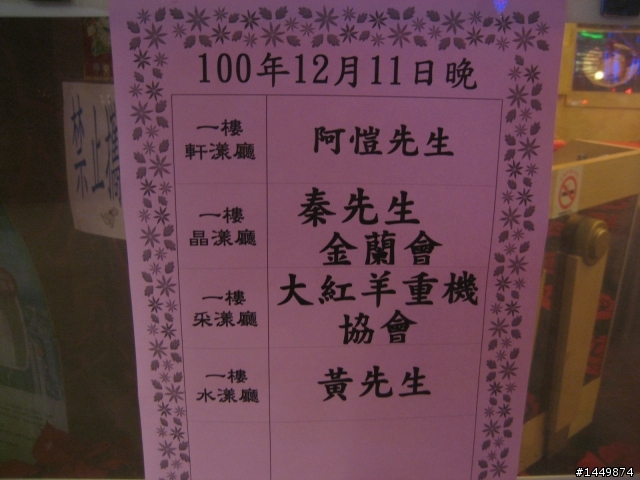 100年12月11日晚
一樓
軒漾廳
阿愷先生
一樓
晶漾廳
秦先生
金蘭會
一樓
采漾廳
大紅羊重機
協會
一樓
水漾廳
黃先生
禁止攜
#1449874